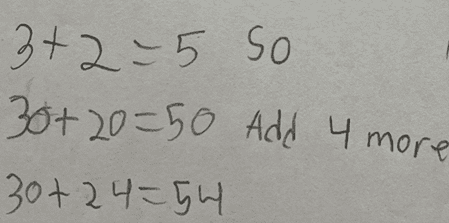 3+2=5 So
30+20=50 Add 4 more
30+24=54